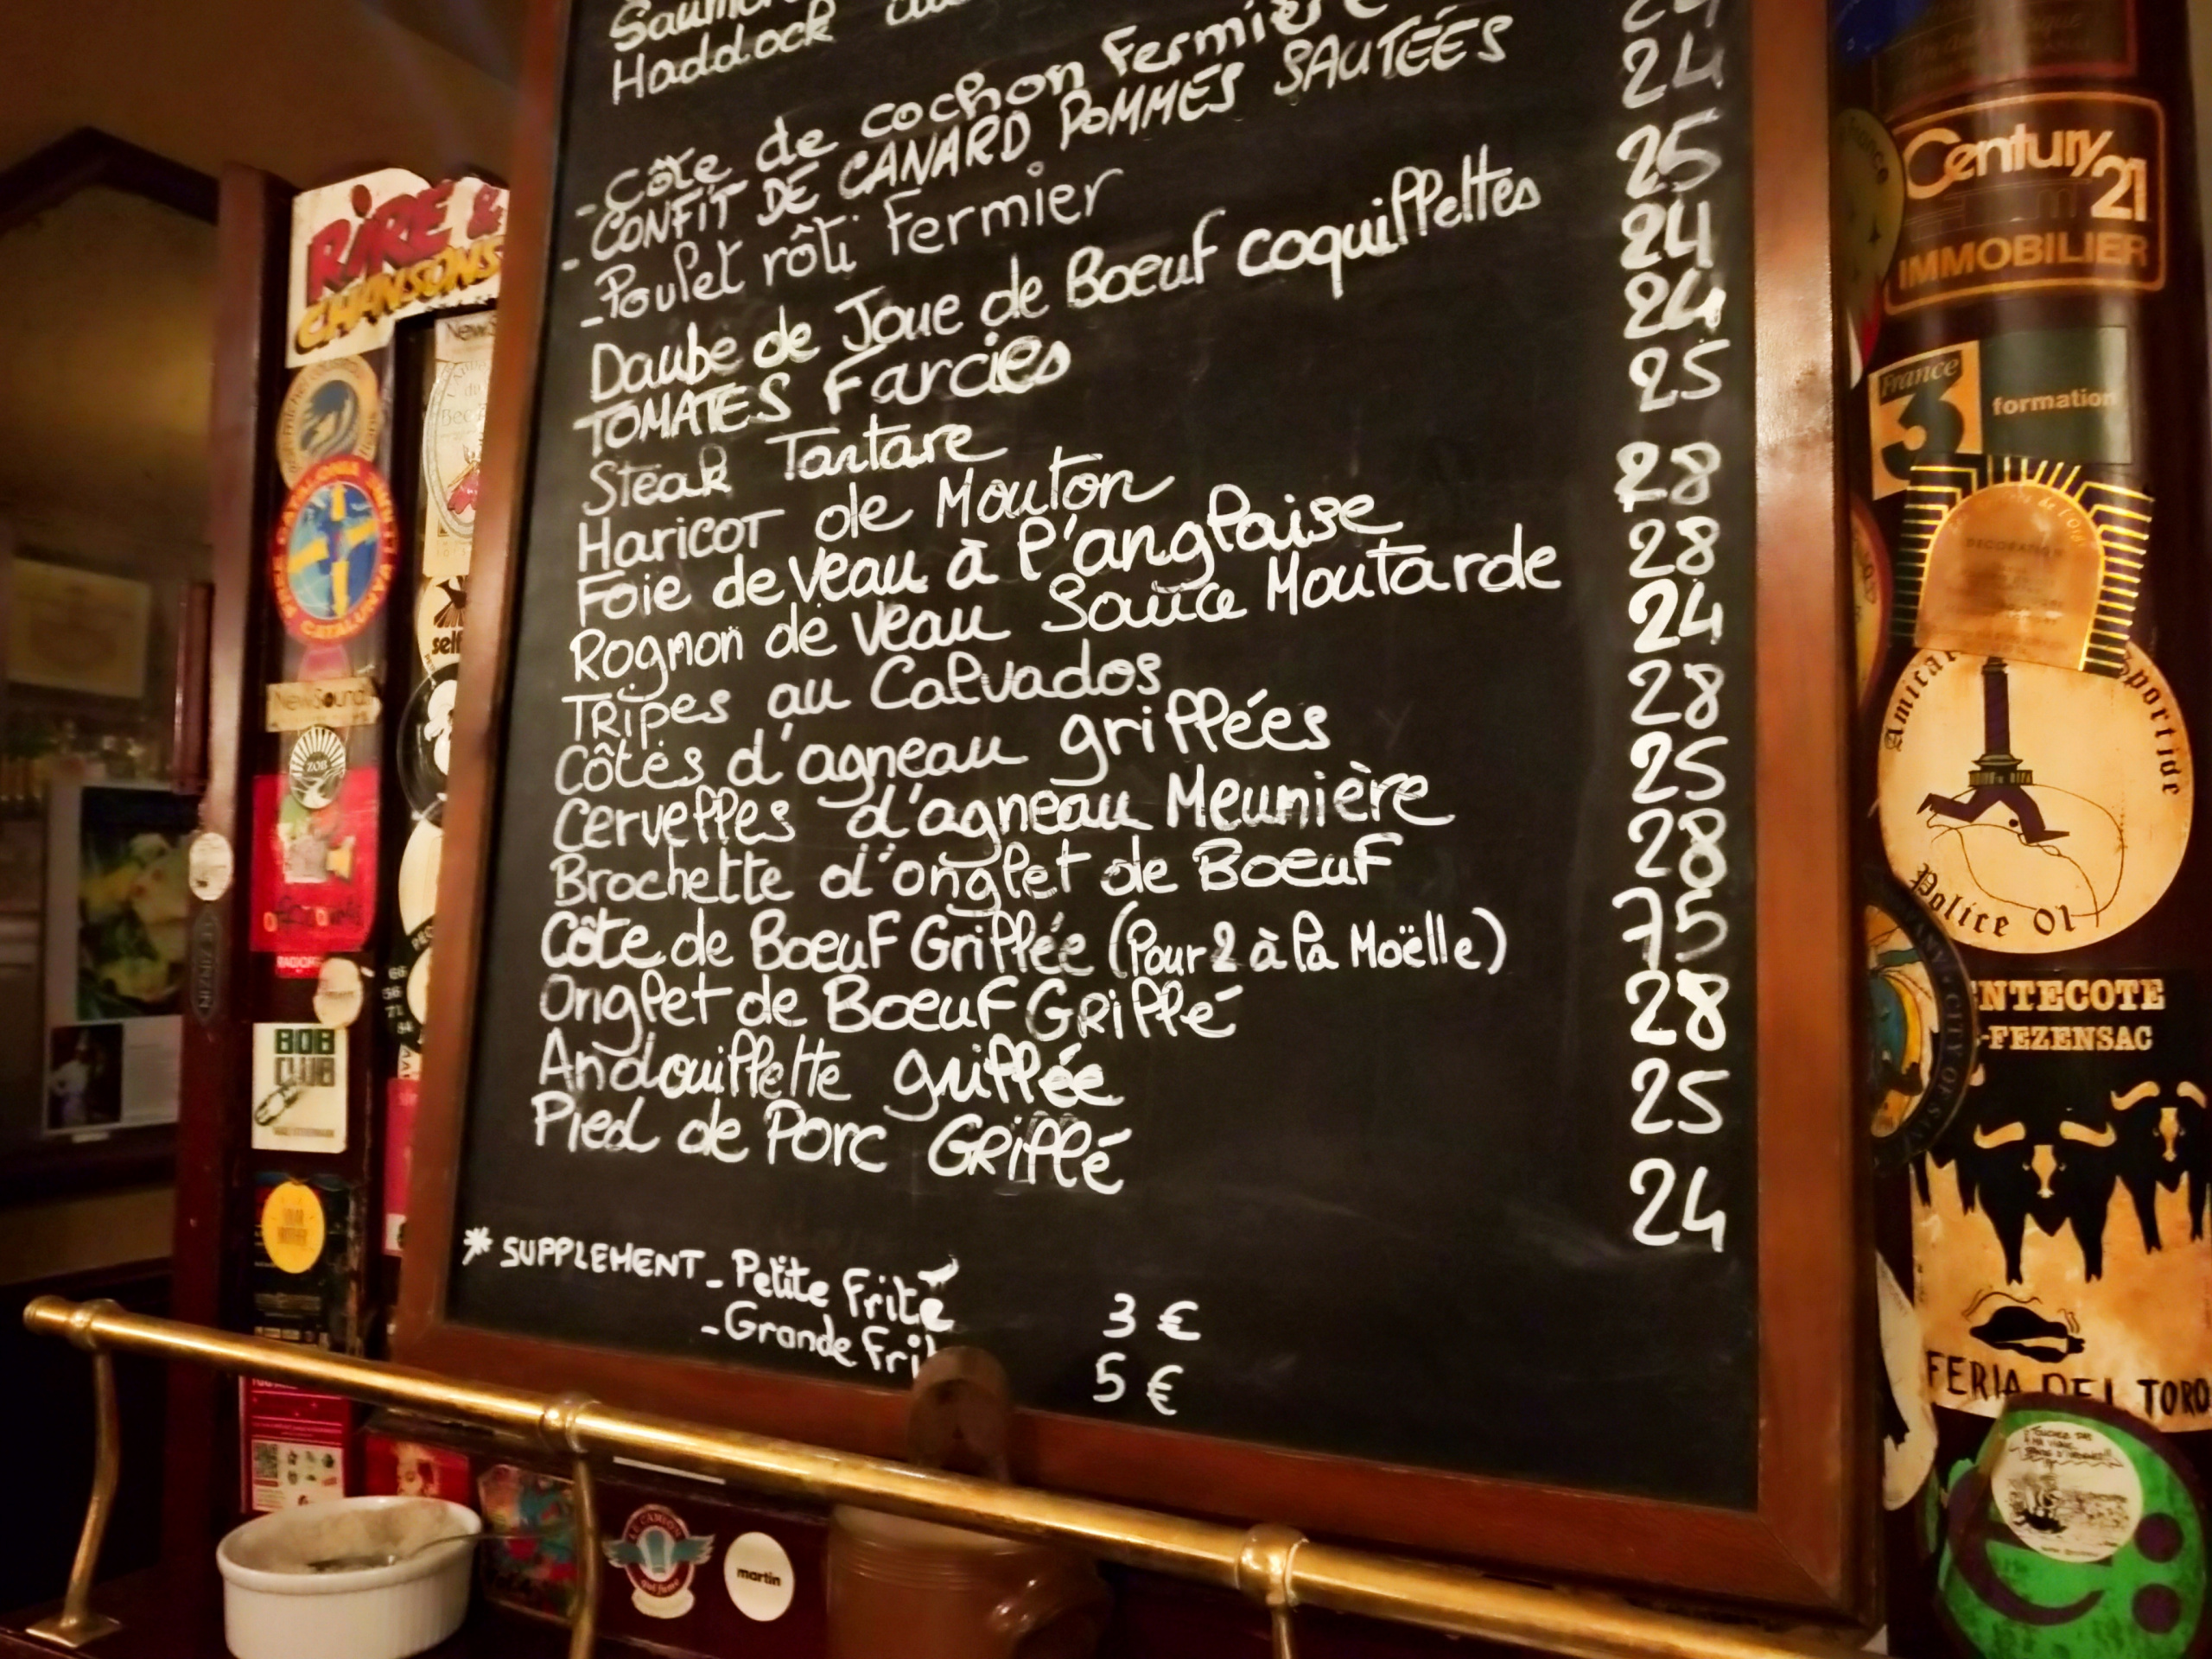 Haddock
- Côte de cochon Fermière
- CONFIT DE CANARD POMMES SAUTÉES 24
- Poulet rôti Fermier 25
Daube de Joue de Boeuf coquillettes 24
TOMATES Farcies 24
Steak Tartare 25
Haricot de Mouton 28
Foie de veau à l'anglaise 28
Rognon de veau Sauce Moutarde 24
TRipes au Calvados 28
Côtes d'agneau grillées 25
Cervelles d'agneau Meunière 28
Brochette d'onglet de Boeuf 75
Côte de Boeuf Grillée (Pour 2 à la Moëlle) 28
Onglet de Boeuf GRillé 25
Andouillette grillée 24
Pied de Porc GRillé
* SUPPLEMENT - Petite Frite 3 €
- Grande Frit 5 €
RIRE &
CHANSONS
NewSound
ZOB
BOB
CLUB
LE CAMION
qui fume
martin
Century 21
IMMOBILIER
France
3 formation
Amicale Sportive
Police 01
NTECOTE
-FEZENSAC
FERIA DEL TORO